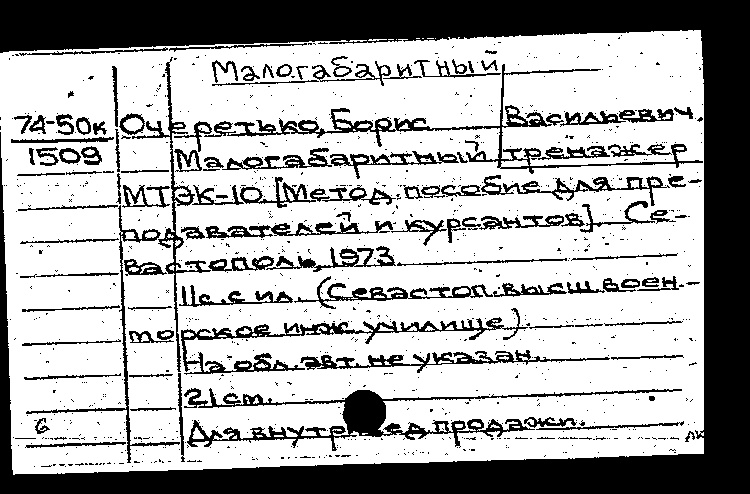 Малогабаритный
74-50к Очеретько, Борис Васильевич.
1509 Малогабаритный тренажер
МТЭК-10. [Метод. пособие для пре-
подавателей и курсантов]. Се-
вастополь, 1973.
11с. с ил. (Севастоп. высш. воен.-
морское инж. училище).
На обл. авт. не указан.
21 см.
6 Для внутр ед. продажи.